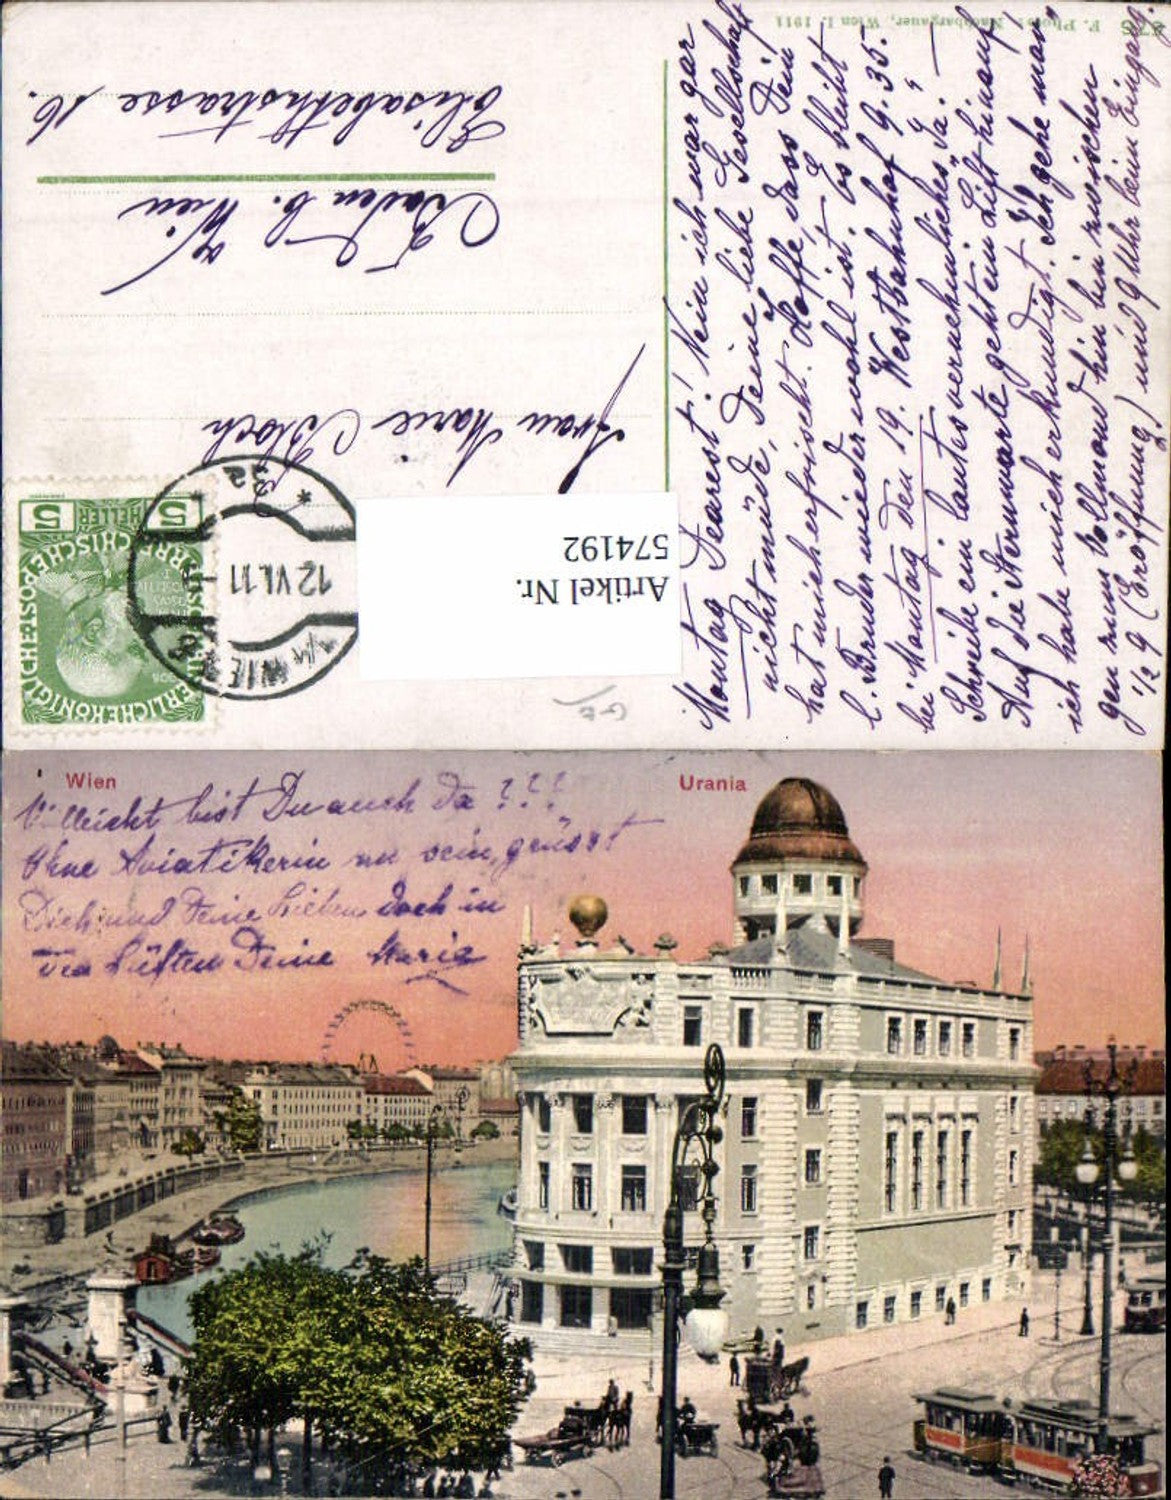 678
F. Photo: Nachbargauer, Wien I. 1911
Montag Dearest! Nein ich war gar
nicht müde, Deine liebe Gesellschaft
hat mich erfrischt. Hoffe, dass Dein
l. Bruder wieder wohl ist. Es bleibt
bei Montag den 19. Westbahnhof 9.35.
Schreibe ein lautes vernehmliches „Ja". –
Auf die Sternwarte geht ein Lift hinauf
ich habe mich erkundigt. Ich gehe man
gen zum Vollmond hin bin zwischen
½ 9 (Eröffnung) und 9 Uhr beim Eingang.
5 HELLER 5
12 VI. 11
WIEN
Artikel Nr.
574192
Frau Marie Bloch
Baden b. Wien
Elisabethstrasse 16.
Wien
Urania
Villeicht bist Du auch da ???
Ohne Aviatikerin zu sein, grüsst
Dich und Deine Lieben doch in
den Lüften Deine Maria